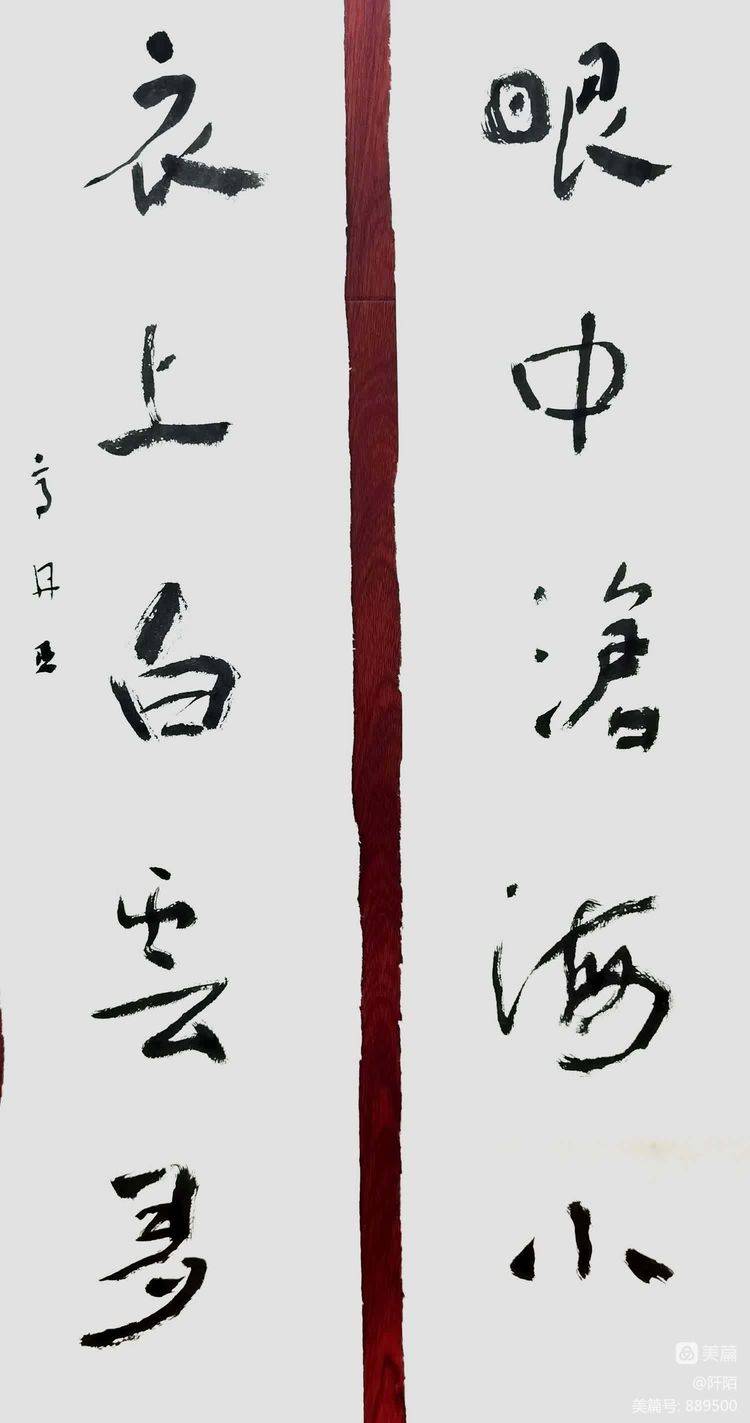 眼中滄海小
衣上白雲多
美篇
@阡陌
美篇号: 889500